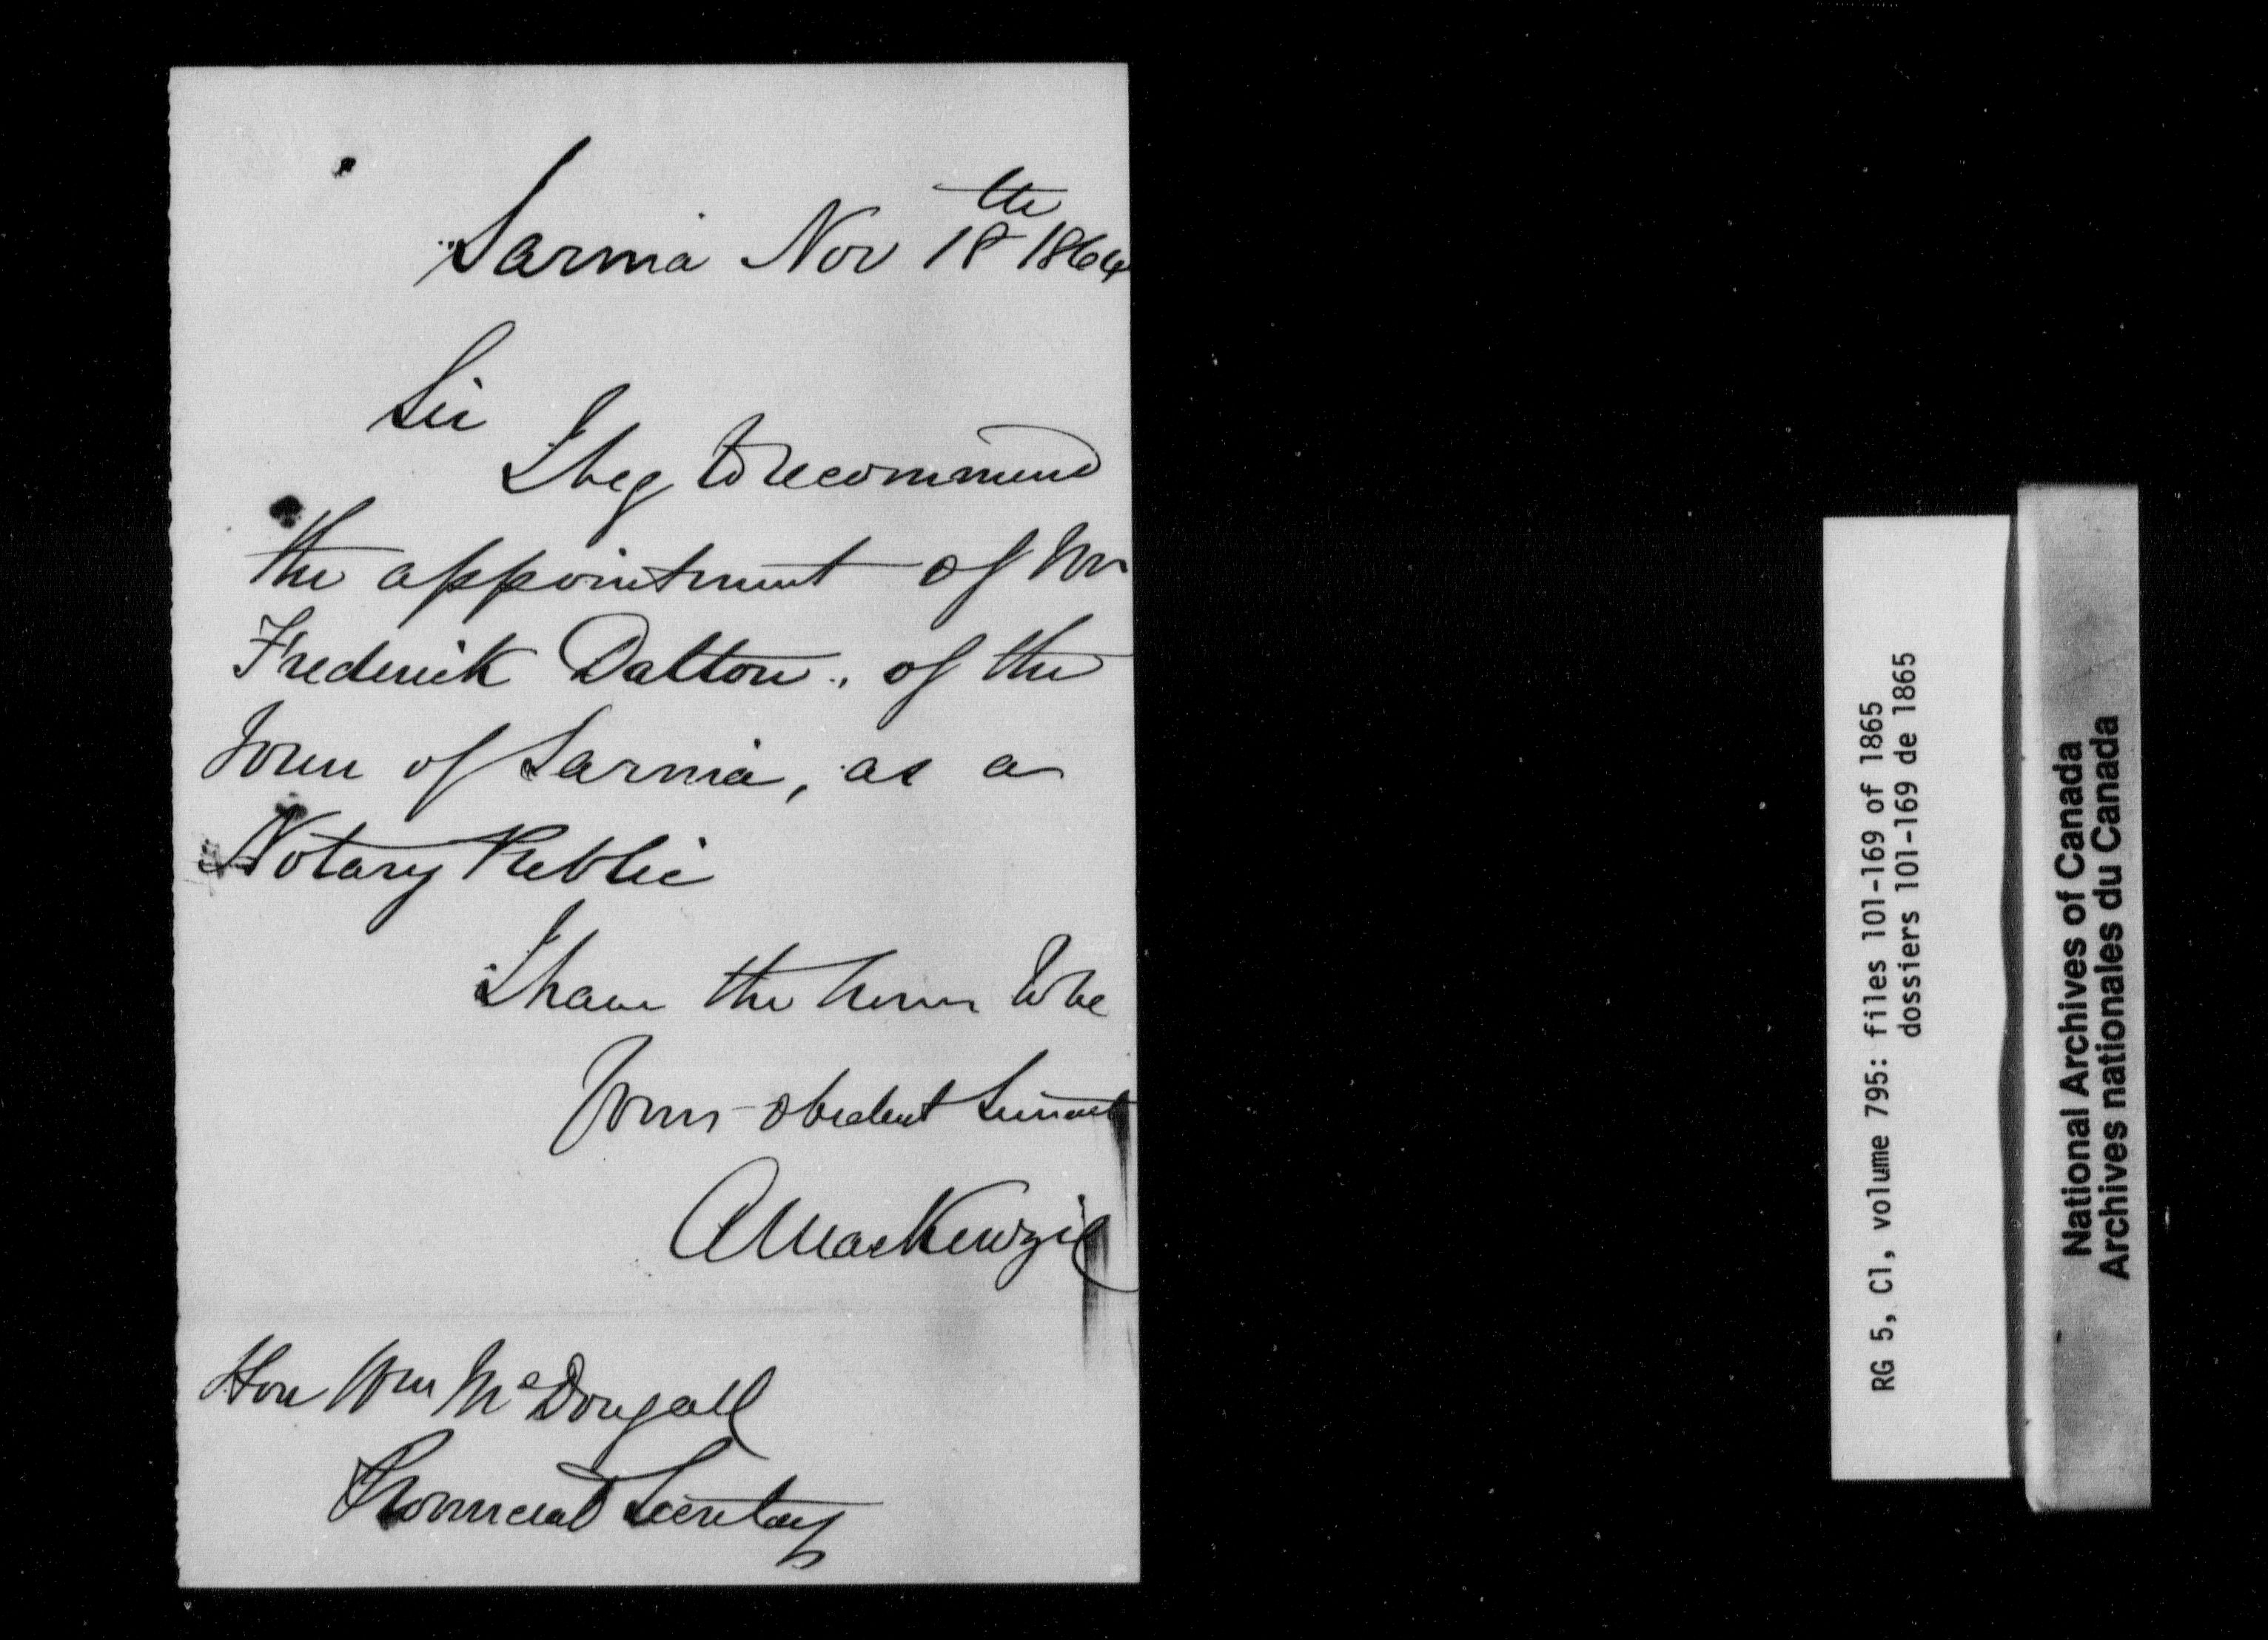 Sarnia Nov 18th 1864
Sir
I beg to recommend
the appointment of Mr
Frederick Dalton, of the
Town of Sarnia, as a
Notary Public
I have the honor to be
Your obedient Servant
A MacKenzie
Hon Wm McDougall
Provincial Secretary
RG 5, C1, volume 795: files 101-169 of 1865
dossiers 101-169 de 1865
National Archives of Canada
Archives nationales du Canada